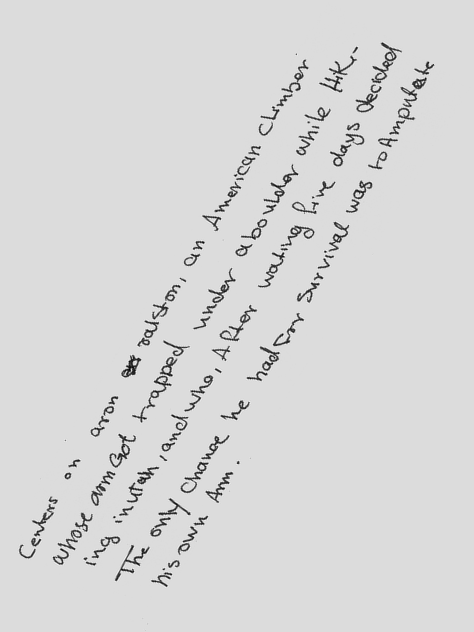 Centers on aron ralston, an American climber
whose arm Got trapped under a boulder while HiK-
ing in utah, and who, After wating five days decided
The only Chance he had For Survival was to Amputate
his own Arm.